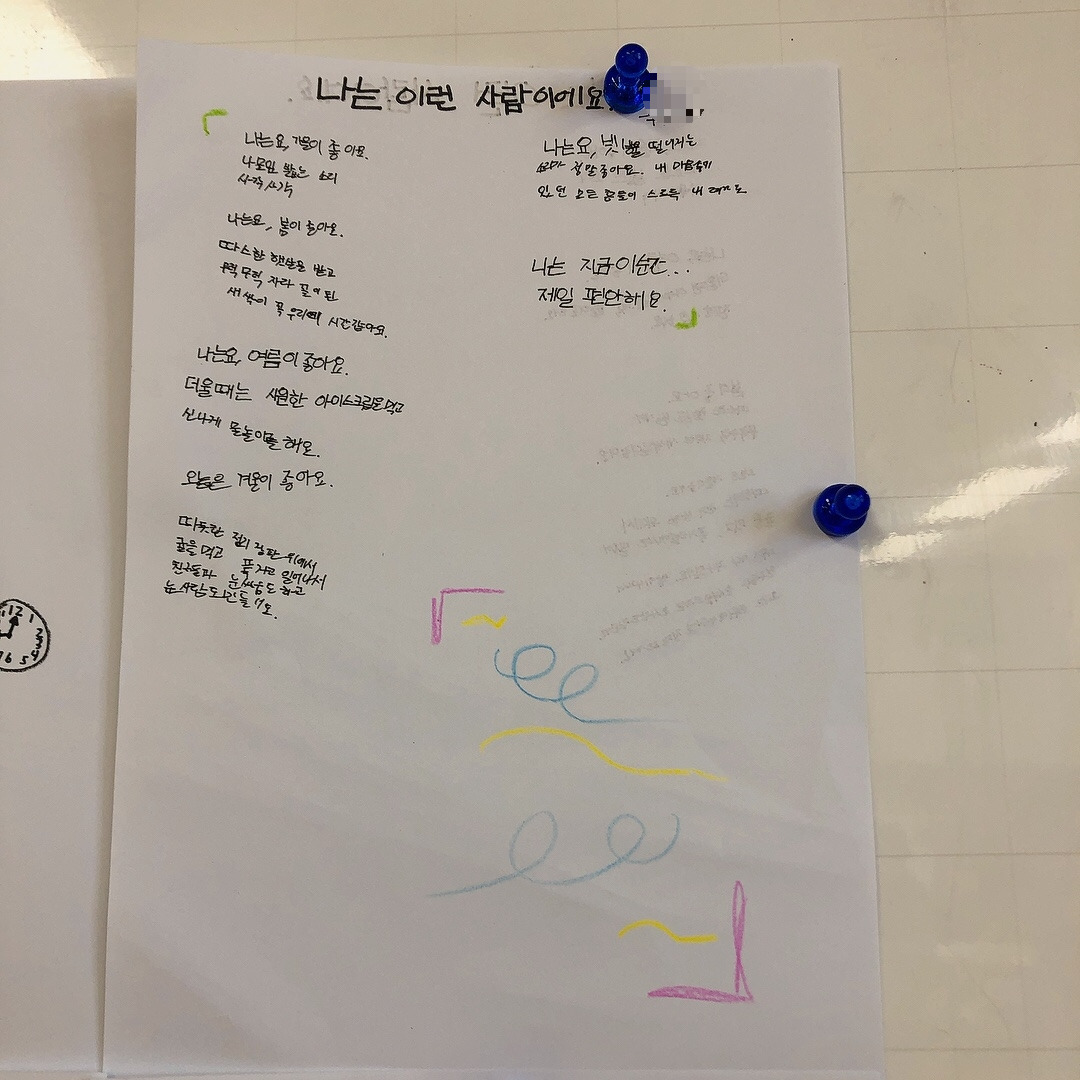 나는 이런 사람이에요.
나는요, 가을이 좋아요.
나뭇잎 밟는 소리
사각사각
나는요, 봄이 좋아요.
따스한 햇살을 받고
무럭무럭 자라 꽃이 된
새싹이 꼭 우리에 시간같아요.
나는요, 여름이 좋아요.
더울때는 시원한 아이스크림을 먹고
신나게 물놀이를 해요.
오늘은 겨울이 좋아요.
따듯한 전기 장판 위에서
귤을 먹고 푹 자고 일어나서
친구들과 눈싸움도 하고
눈사람도 만들어요.
나는요, 빗방울 떨어지는
소리가 정말 좋아요. 내 마음속에
있던 모든 것들이 스르륵 내려가요
나는 지금 이순간...
제일 편안해요.
12 1
2
3
4
5
6